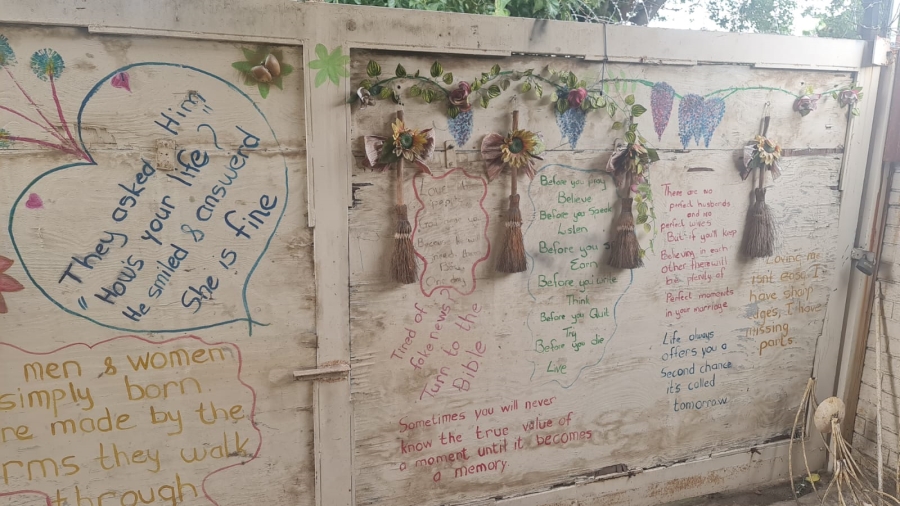 "They asked Him
How's your life?
He smiled & answerd
She is fine
men & women
simply born
re made by the
rms they walk
through
Tired of
fake news?
Turn to the
Bible
Sometimes you will never
know the true value of
a moment until it becomes
a memory.
Before you pray
Believe
Before you Speak
Listen
Before you s
Earn
Before you write
Think
Before you Quit
Try
Before you die
Live
There are no
perfect husbands
and no
perfect wives
But if you'll keep
Believing in each
other there will
be plenty of
Perfect moments
in your marriage
Life always
offers you a
Second chance
it's called
tomorrow
Loving me
isnt easy I
have sharp
dges, I have
missing
parts